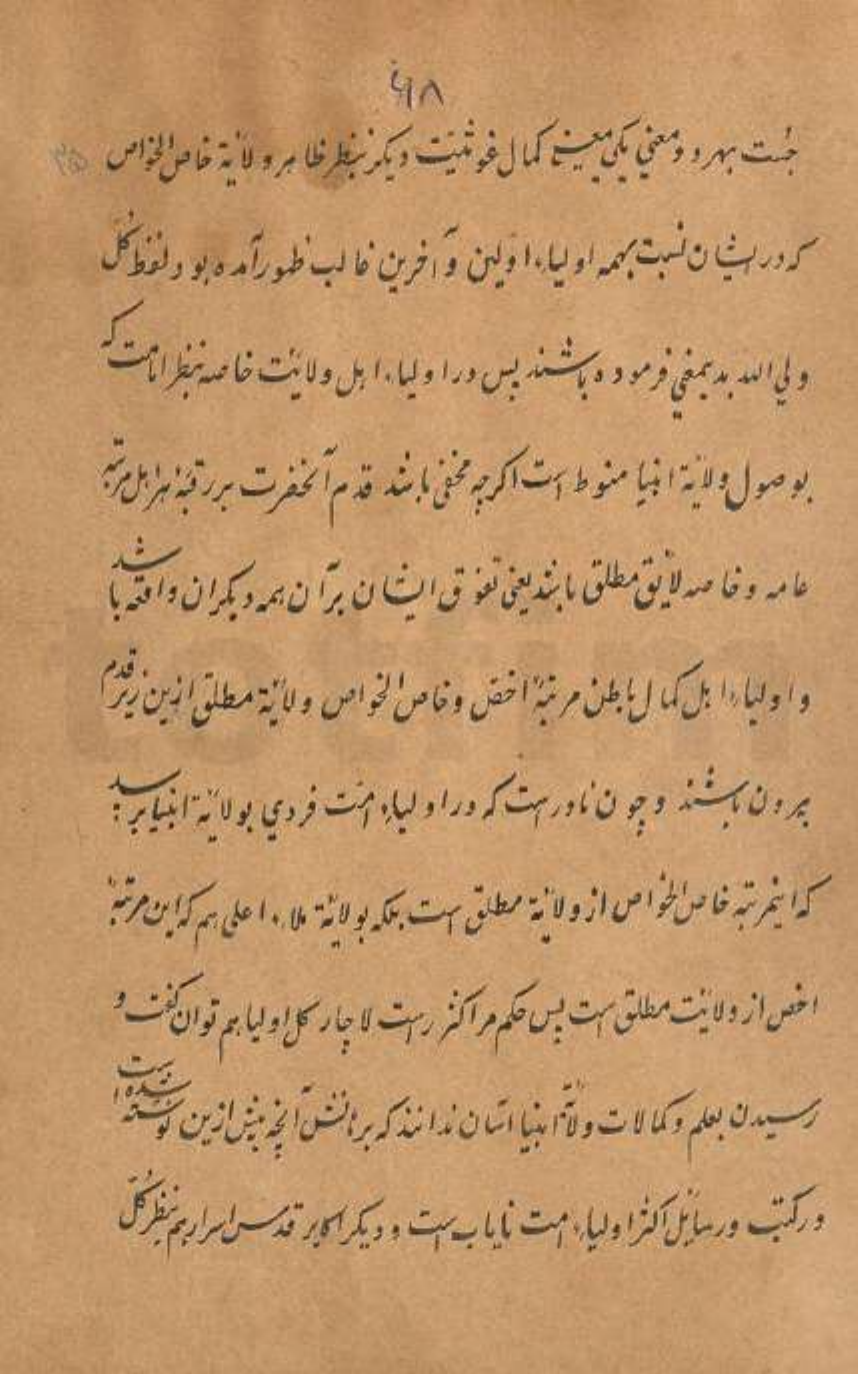 ۶۸
جئت بهر دو معنی یکی بمعنی کمال غوثیت دیکر بنظر ظاهر ولایة خاص الخواص
که در ایشان نسبت بهمه اولیاء اولین و آخرین غالب ظهور آمده بود لفظ کل
ولي الله بدیمعني فرموده باشند پس در اولیاء اهل ولایت خاصه بنظر امامت که
بوصول ولایة انبیا منوط است اکرچه مخفي باشد قدم آنحضرت بر رقبۀ هر اهل مرتبه
عامه و خاصه لایق مطلق باشد یعني تفوق ایشان برآن همه دیکران واقع باشد
و اولیاء اهل کمال باطن مرتبۀ اخص و خاص الخواص ولایة مطلق ازین زیر قدم
بیرون باشند و چون نادر است که در اولیاء امت فردي بولایة انبیا برسد
که اینمرتبه خاص الخواص از ولایة مطلق است بلکه بولایة ملاء اعلی هم که این مرتبۀ
اخص از ولایت مطلق است پس حکم مر اکثر راست لاچار کل اولیا هم توان کفت و
رسیدن بعلم و کمالات ولایة انبیا آسان ندانند که برانش آنچه پیش ازین نوشته شده است
در کتب و رسایل اکثر اولیاء امت نایاب است و دیکر اکابر قدس اسرارهم بنظر کل